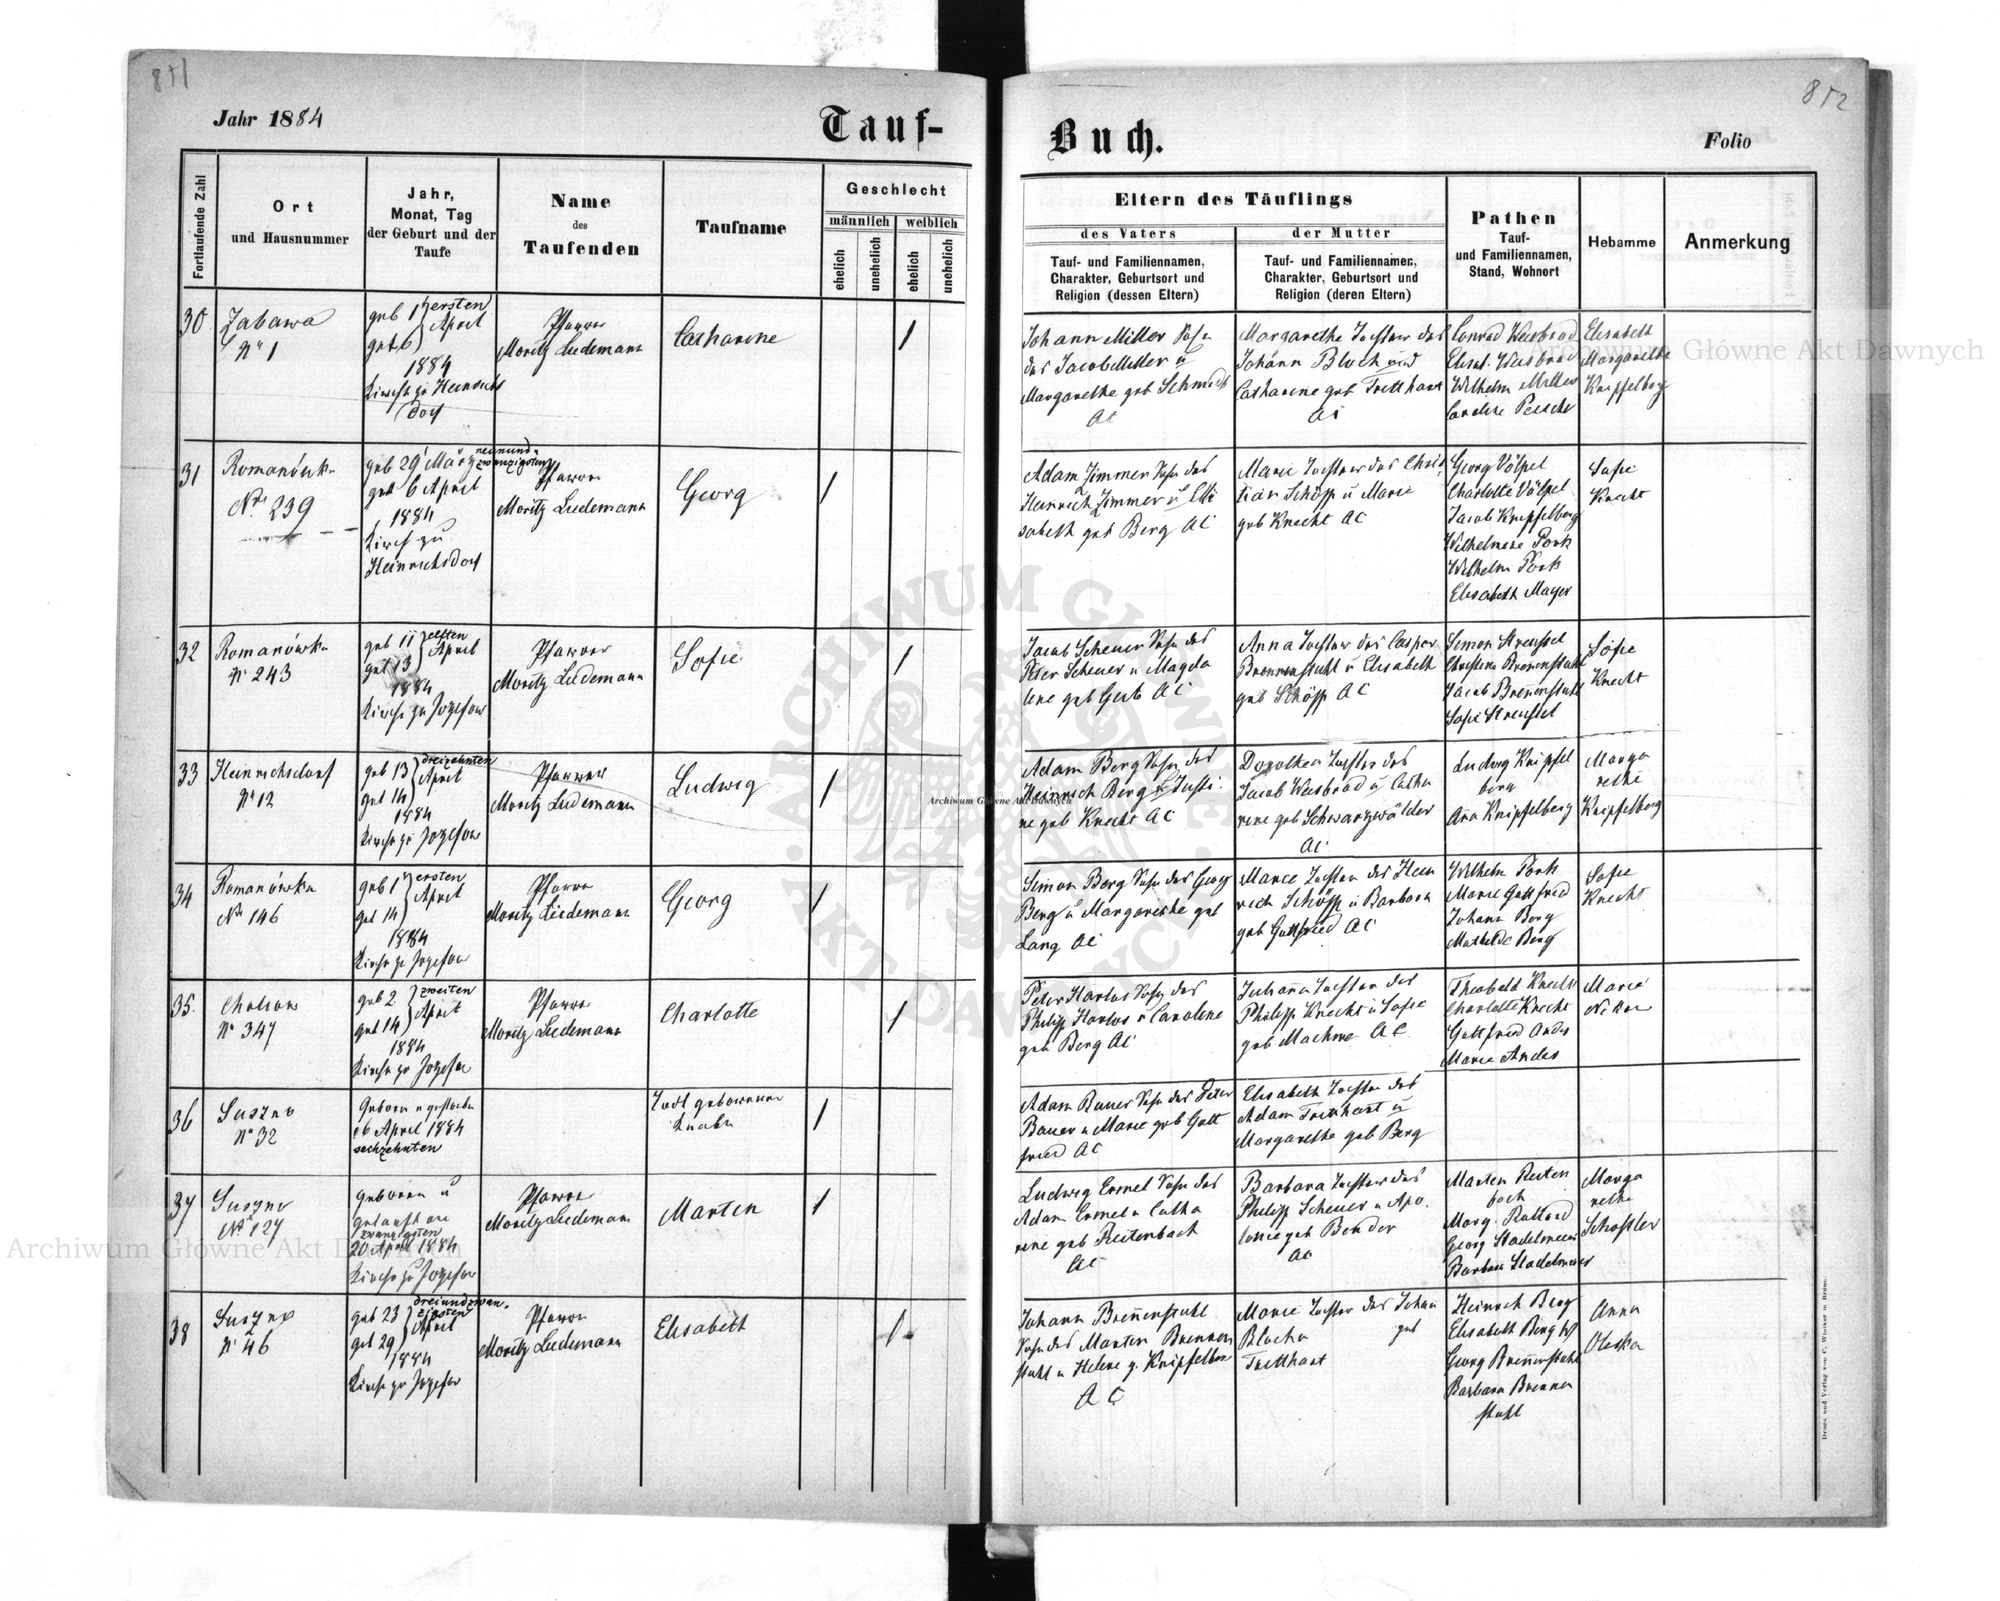 851
Jahr 1884
Tauf-
Fortlaufende Zahl
Ort
und Hausnummer
Jahr,
Monat, Tag
der Geburt und der
Taufe
Name
des
Taufenden
Taufname
Geschlecht
männlich
weiblich
ehelich
unehelich
ehelich
unehelich
30
Zabawa
No 1
geb 1 ersten
get 6 April
1884
Kirche zu Heinrichs
dorf
Pfarrer
Moritz Liedemann
Catharine
31
Romanówka
No 239
geb 29 März neunund-
zwanzigsten
get 6 April
1884
Kirche zu
Heinrichsdorf
Pfarrer
Moritz Liedemann
Georg
32
Romanówka
No 243
geb 11 elften
get 13 April
1884
Kirche zu Jozefow
Pfarrer
Moritz Liedemann
Sofie
33
Heinrichsdorf
No 12
geb 13 dreizehnten
April
get 14
1884
Kirche zu Jozefow
Pfarrer
Moritz Liedemann
Ludwig
34
Romanówka
No 146
geb 1 ersten
April
get 14
1884
Kirche zu Jozefow
Pfarrer
Moritz Liedemann
Georg
35.
No 347
geb 2 zweiten
April
get 14
1884
Kirche zu Jozefow
Pfarrer
Moritz Liedemann
Charlotte
36
Suszno
No 32
Geboren u gestorben
16 April 1884
sechzehnten
Todt geborener
Knabe
37
Suszno
No 127
geboren u
getauft am
zwanzigsten
20 April 1884
Kirche zu Jozefow
Pfarrer
Moritz Liedemann
Martin
38
Suszno
No 46
geb 23 dreiundzwan-
zigsten
April
get 29
1884
Kirche zu Jozefow
Pfarrer
Moritz Liedemann
Elisabeth
852
Buch.
Folio
Eltern des Täuflings
des Vaters
der Mutter
Tauf- und Familiennamen,
Charakter, Geburtsort und
Religion (dessen Eltern)
Tauf- und Familiennamen,
Charakter, Geburtsort und
Religion (deren Eltern)
Pathen
Tauf-
und Familiennamen,
Stand, Wohnort
Hebamme
Anmerkung
Johann Miller Sohn
des Jacob Miller u
Margarethe geb Schmidt
AC
Margarethe Tochter des
Johann Bloch und
Catharine geb Tretthart
AC
Conrad Weisbrod
Elisab. Weisbrod
Wilhelm Miller
Caroline
Elisabeth
Margarethe
Knipfelberg
Adam Zimmer Sohn des
Heinrich Zimmer u Eli
sabeth geb Berg AC
Marie Tochter des Chris
tian Schöpp u Marie
geb Knecht AC
Georg Völpel
Charlotte Völpel
Jacob Knipfelberg
Wilhelmine Pork
Wilhelm Pork
Elisabeth Mayer
Sofie
Knecht
Jacob Scheuer Sohn des
Peter Scheuer u Magda
lene geb Gerb AC
Anna Tochter des Casper
Brennenstuhl u Elisabeth
geb Schöpp AC
Simon Streussel
Christina Brennenstuhl
Jacob Brennenstuhl
Sofie Streussel
Sofie
Knecht
Adam Berg Sohn des
Heinrich Berg u Justi
ne geb Knecht AC
Dorothea Tochter des
Jacob Weisbrod u Catha
rine geb Schwarzwälder
AC
Ludwig Knipfel
berg
Ana Knipfelberg
Marga
rethe
Knipfelberg
Simon Berg Sohn des Georg
Berg u Margarethe geb
Lang AC
Marie Tochter des Hein
rich Schöpp u Barbara
geb Gottfried AC
Wilhelm Pork
Marie Gottfried
Johann Berg
Mathilde Berg
Sofie
Knecht
Peter Harlos Sohn des
Philipp Harlos u Caroline
geb Berg AC
Juliana Tochter des
Philipp Knecht u Sofie
geb Machme AC
Theobald Knecht
Charlotte Knecht
Gottfried Andes
Marie Andes
Marie
Adam Bauer Sohn des Peter
Bauer u Marie geb Gott
fried AC
Elisabeth Tochter des
Adam Tretthart u
Margarethe geb Berg
Ludwig Ermel Sohn des
Adam Ermel u Catha
rine geb Reitenbach
AC
Barbara Tochter des
Philipp Scheuer u Apo
lonie geb Bender
AC
Martin Reiten
bach
Marg.
Georg Stadelmeier
Barbara Stadelmeier
Marga
rethe
Schossler
Johann Brennenstuhl
Sohn des Martin Brennen
stuhl u Helene g. Knipfelberg
AC
Marie Tochter des Johan
Bloch u geb
Tretthart
Heinrich Berg
Elisabeth Berg
Georg Brennenstuhl
Barbara Brennen
stuhl
Anna
Oleska
Druck und Verlag von C. Winiker in Brünn.
Archiwum Główne Akt Dawnych
Archiwum Główne Akt Dawnych
Archiwum Główne Akt Dawnych
ARCHIWUM GŁÓWNE
AKT DAWNYCH